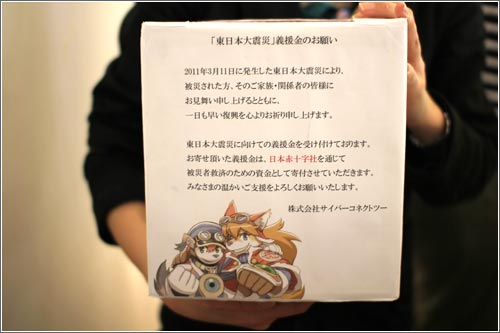 「東日本大震災」義援金のお願い
2011年3月11日に発生した東日本大震災により、
被災された方、そのご家族・関係者の皆様に
お見舞い申し上げるとともに、
一日も早い復興を心よりお祈り申し上げます。
東日本大震災に向けての義援金を受け付けております。
お寄せ頂いた義援金は、日本赤十字社を通じて
被災者救済のための資金として寄付させていただきます。
みなさまの温かいご支援をよろしくお願いいたします。
株式会社サイバーコネクトツー